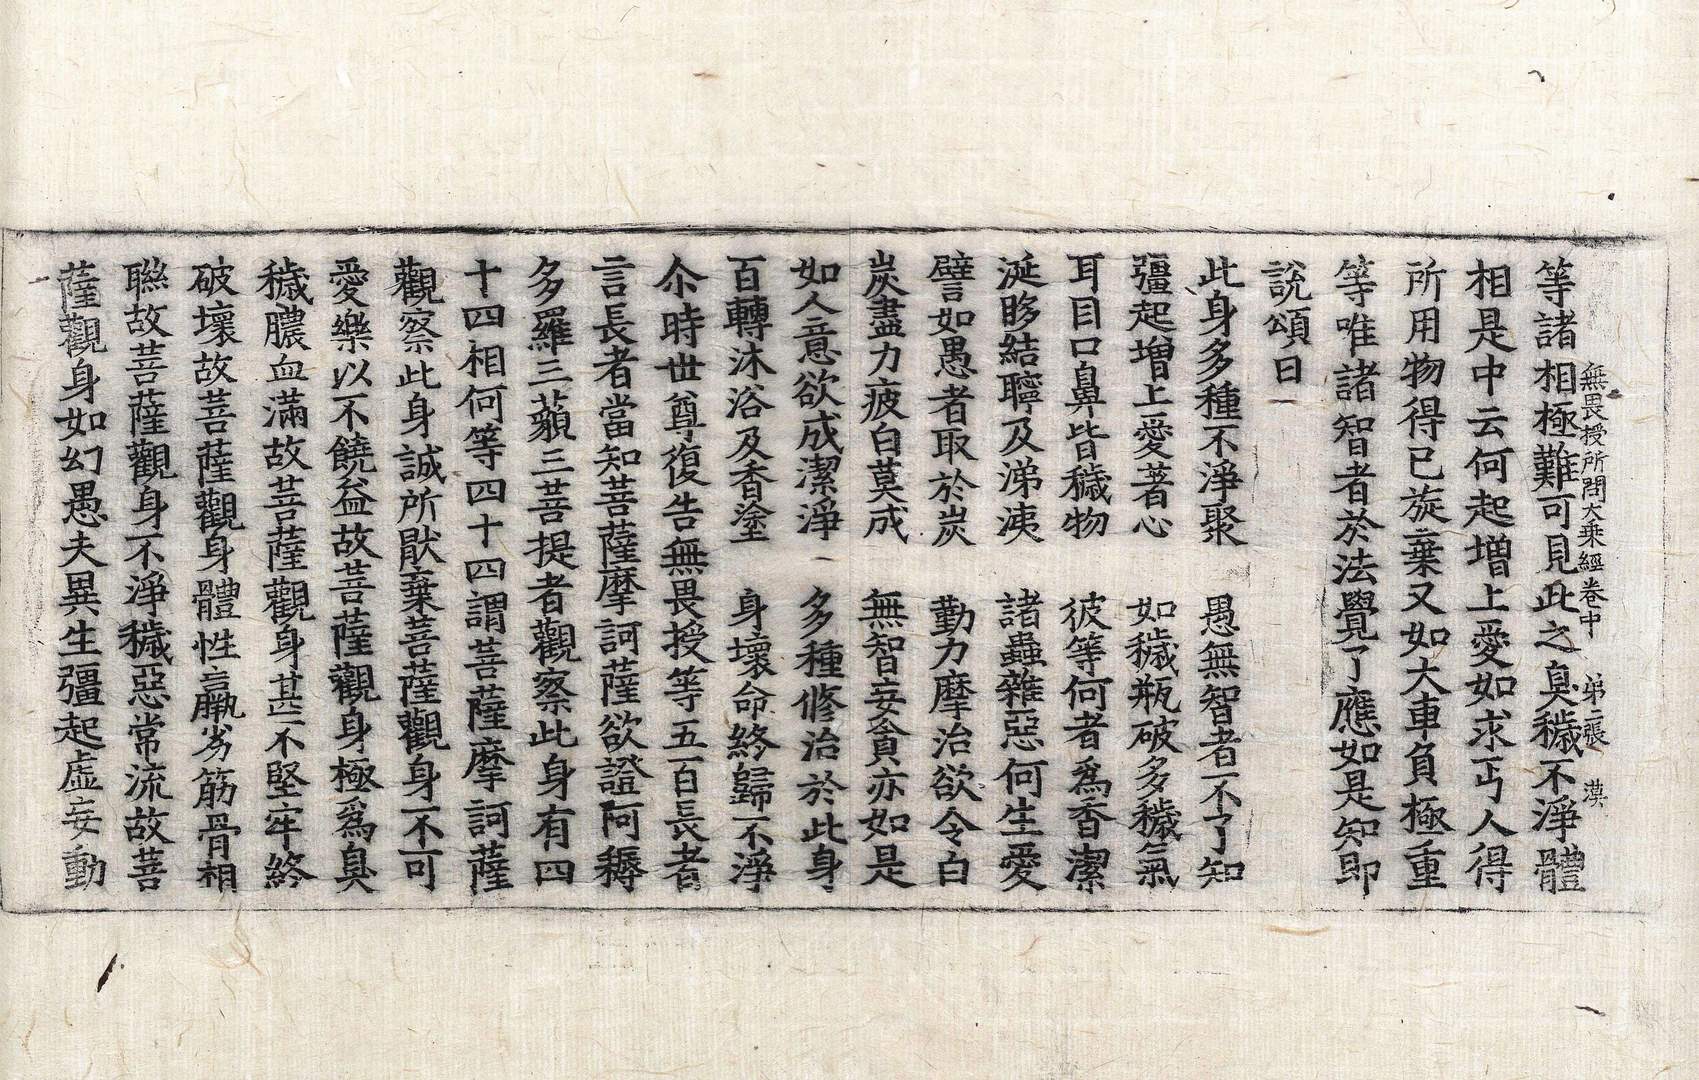 無畏授所問大乗經卷中 第二張 漢
等諸相極難可見此之臭穢不淨體
相是中云何起增上愛如求丐人得
所用物得已旋棄又如大車負極重
等唯諸智者於法覺了應如是知即
說頌曰
此身多種不淨聚 愚無智者不了知
彊起增上愛著心 如穢瓶破多穢氣
耳目口鼻皆穢物 彼等何者爲香潔
涎眵結聹及涕洟 諸蟲雜惡何生愛
譬如愚者取於炭 勤力摩治欲令白
炭盡力疲白莫成 無智妄貪亦如是
如人意欲成潔淨 多種修治於此身
百轉沐浴及香塗 身壞命終歸不淨
尒時世尊復告無畏授等五百長者
言長者當知菩薩摩訶薩欲證阿耨
多羅三藐三菩提者觀察此身有四
十四相何等四十四謂菩薩摩訶薩
觀察此身誠所猒棄菩薩觀身不可
愛樂以不饒益故菩薩觀身極爲臭
穢膿血滿故菩薩觀身甚不堅牢終
破壞故菩薩觀身體性羸劣筋骨相
聯故菩薩觀身不淨穢惡常流故菩
薩觀身如幻愚夫異生彊起虛妄動